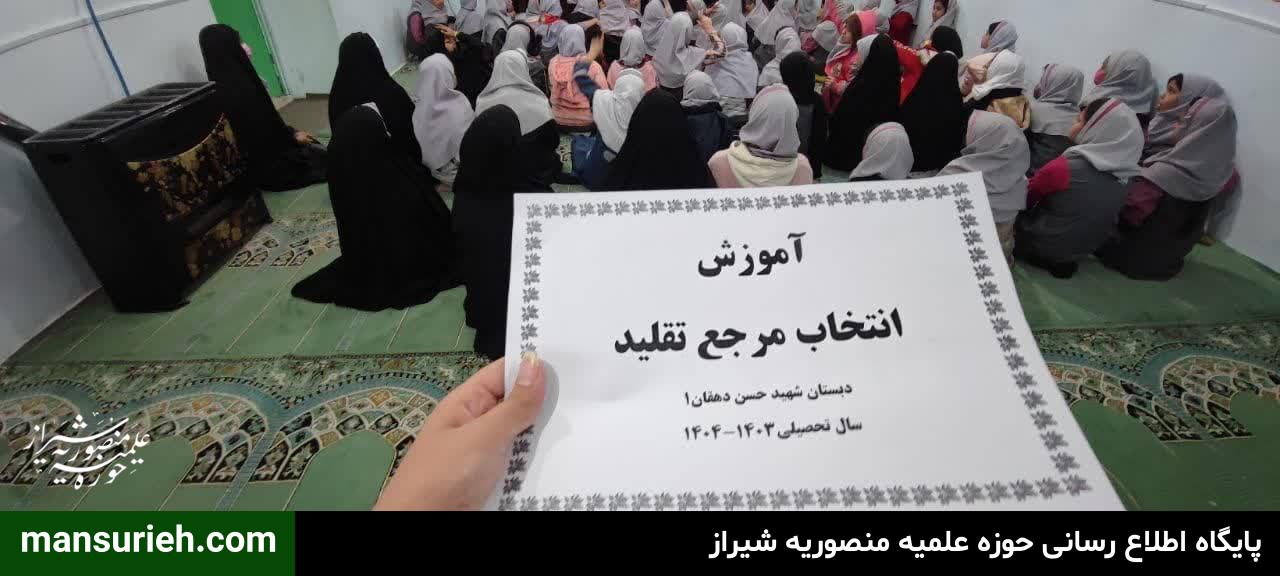 آموزش
انتخاب مرجع تقلید
دبستان شهید حسن دهقان۱
سال تحصیلی۱۴۰۳-۱۴۰۴
حوزه علمیه منصوریه شیراز
mansurieh.com
پایگاه اطلاع رسانی حوزه علمیه منصوریه شیراز